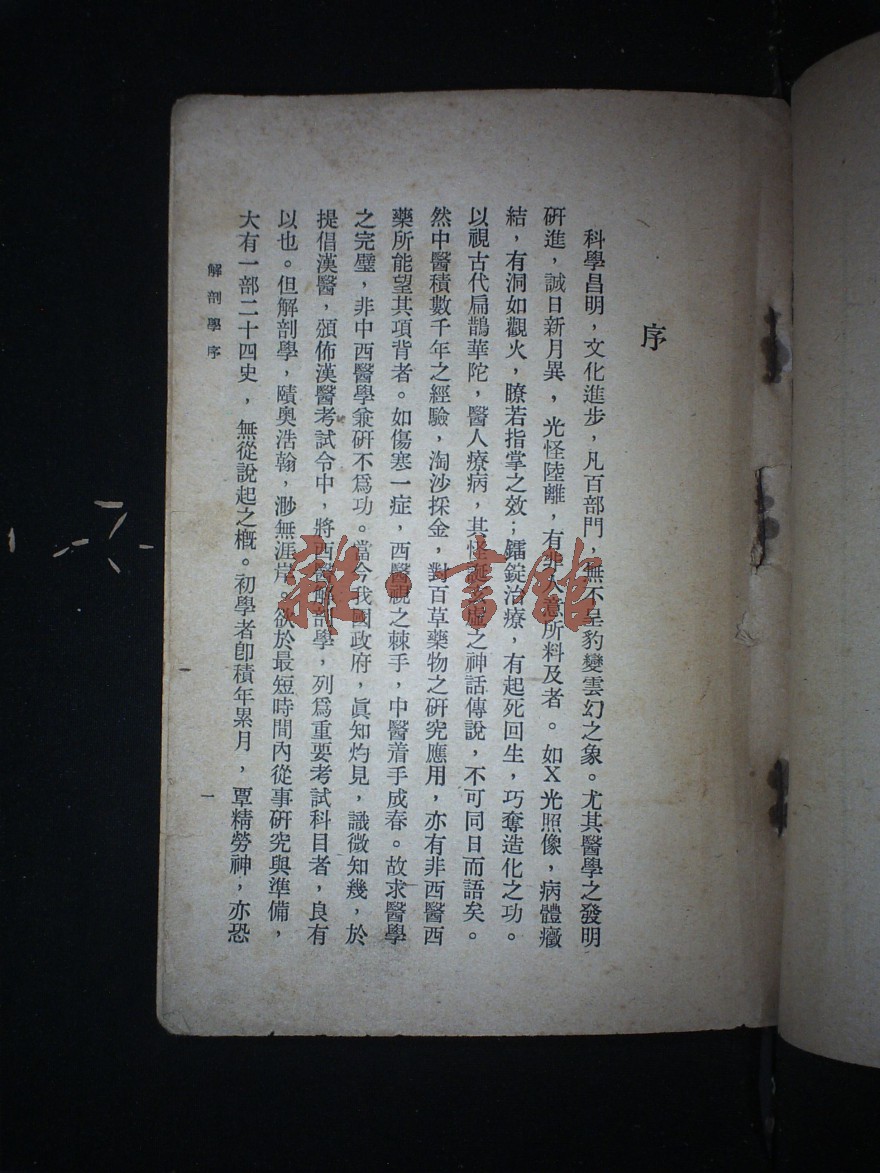 序
科學昌明，文化進步，凡百部門，無不呈豹變雲幻之象。尤其醫學之發明
研進，誠日新月異，光怪陸離，有非人意所料及者。如X光照像，病體癥
結，有洞如觀火，瞭若指掌之效；鐳錠治療，有起死回生，巧奪造化之功。
以視古代扁鵲華陀，醫人療病，其怪誕玄虛之神話傳說，不可同日而語矣。
然中醫積數千年之經驗，淘沙採金，對百草藥物之研究應用，亦有非西醫西
藥所能望其項背者。如傷寒一症，西醫視之棘手，中醫着手成春。故求醫學
之完璧，非中西醫學兼研不爲功。當今我國政府，眞知灼見，識微知幾，於
提倡漢醫，頒佈漢醫考試令中，將西醫解剖學，列爲重要考試科目者，良有
以也。但解剖學，賾奧浩翰，渺無涯岸，欲於最短時間內從事研究與準備，
大有一部二十四史，無從說起之槪。初學者卽積年累月，覃精勞神，亦恐
解剖學序
一
雜·書館